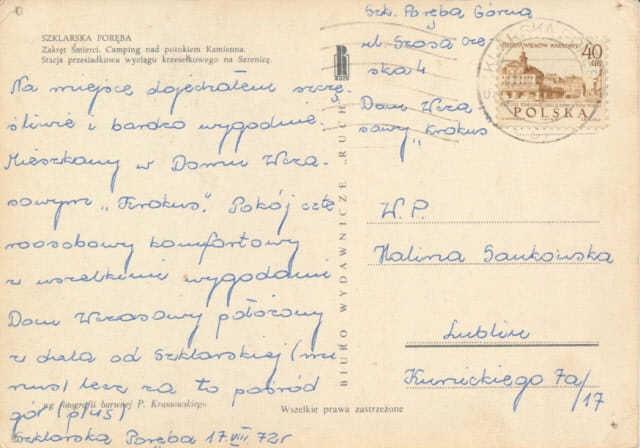 SZKLARSKA PORĘBA
Zakręt Śmierci. Camping nad potokiem Kamienna.
Stacja przesiadkowa wyciągu krzesełkowego na Szrenicę.
Na miejsce dojechałem szczę
śliwie i bardzo wygodnie.
Mieszkamy w Domu Wcza-
sowym "Krokus". Pokój czte
roosobowy komfortowy
z wszelkimi wygodami
Dom Wczasowy położony
z dala od Szklarskiej (mi
nus) lecz za to pośród
gór (plus)
wg fotografii barwnej P. Krassowskiego
Szklarska Poręba 17.VIII.72r
BIURO WYDAWNICZE „RUCH"
RUCH
Szk. Poręba Górna
ul. Szosa Cze
ska 4
Dom Wcza
sowy „Krokus
SIEDEM WIEKÓW WARSZAWY
40 GR
POLSKA
SZKLARSKA
W.P.
Halina Sankowska
Lublin
Kunickiego 7a/
17
Wszelkie prawa zastrzeżone